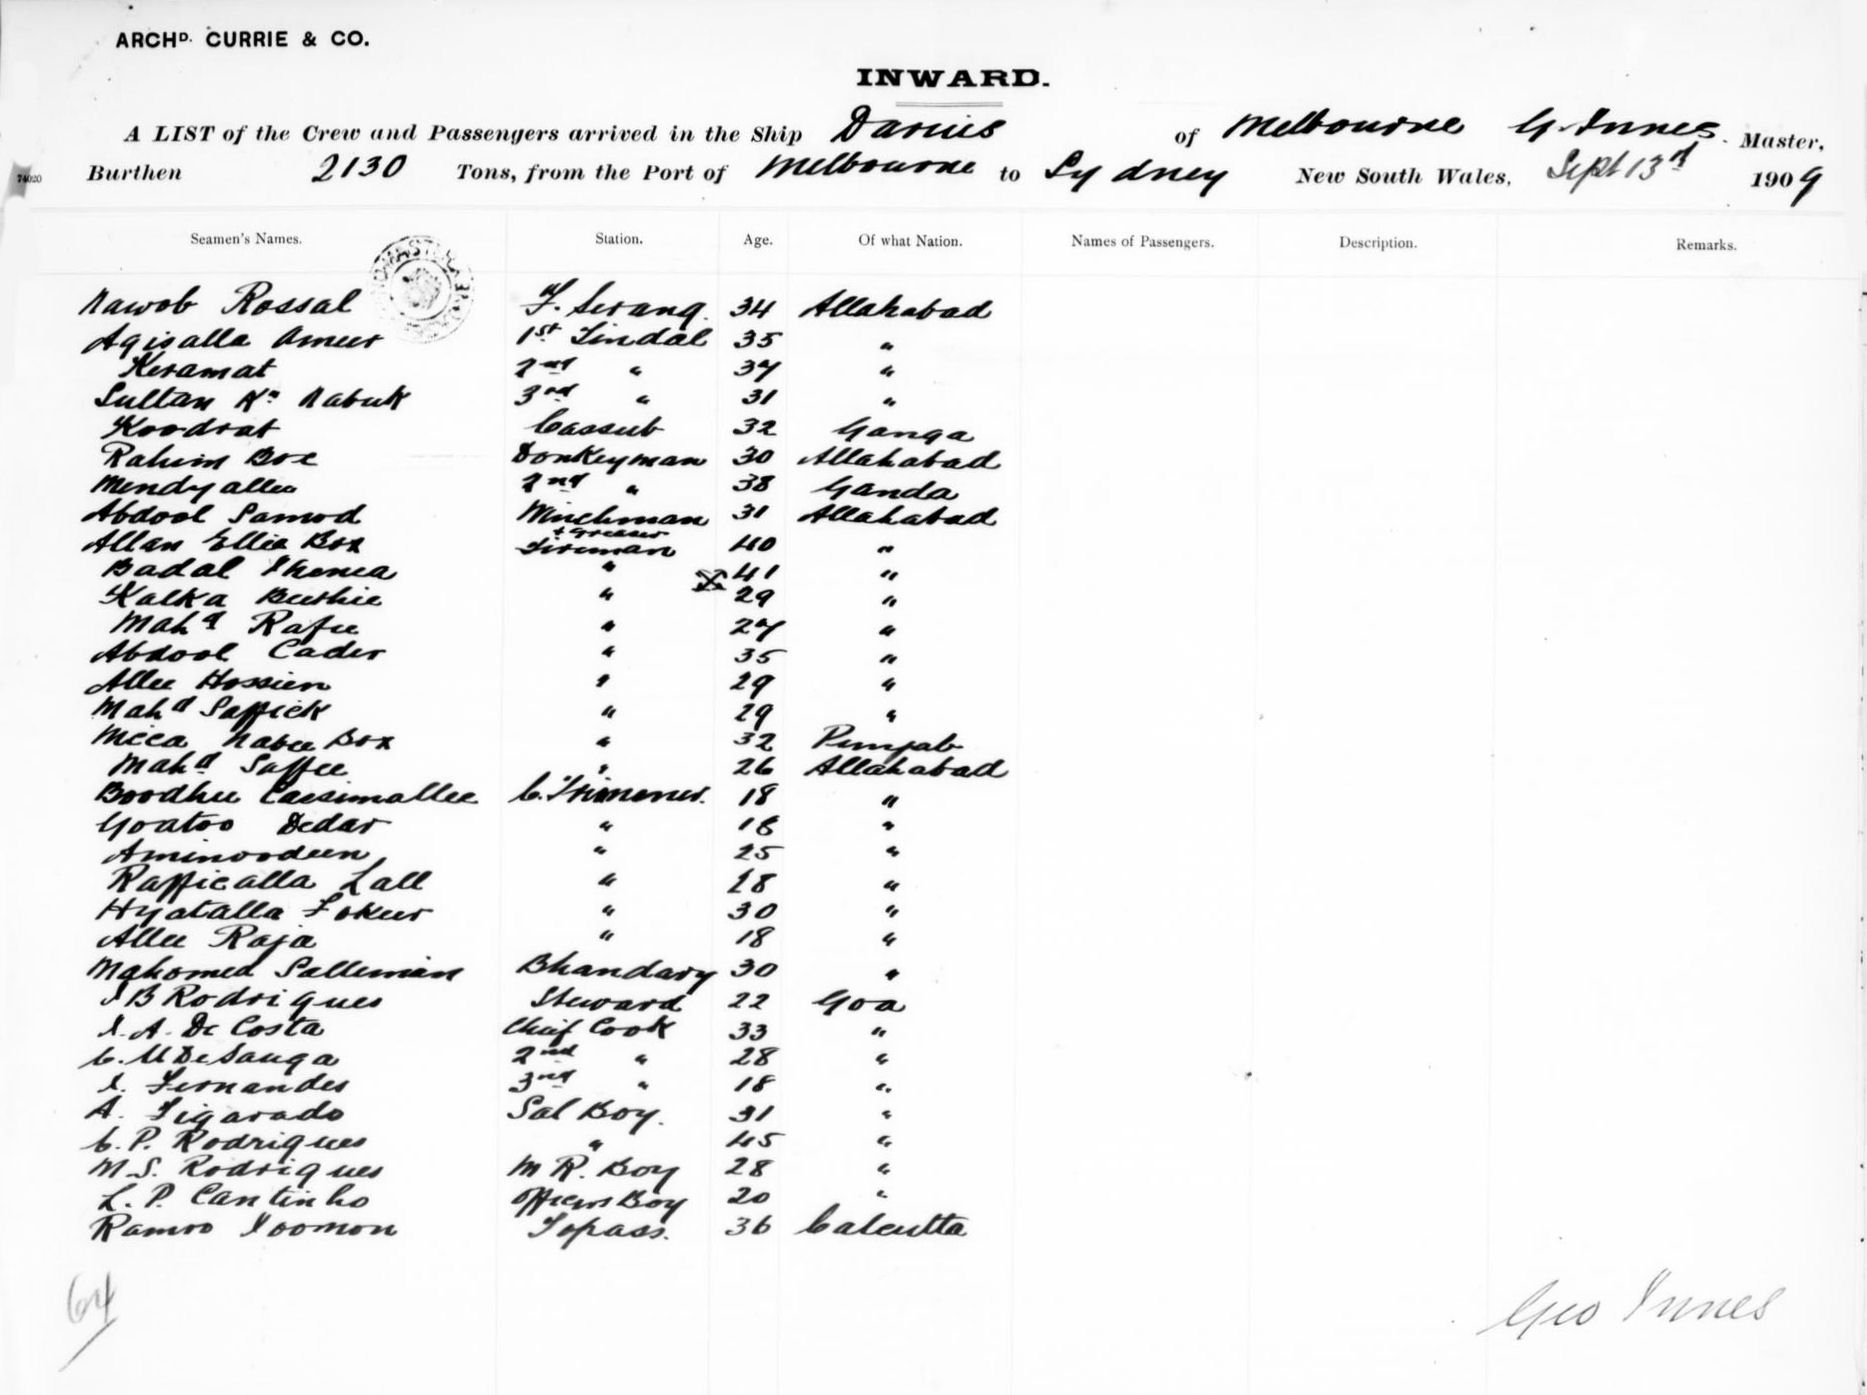 ARCHD. CURRIE & CO.
INWARD.
A LIST of the Crew and Passengers arrived in the Ship Darius of Melbourne G. Innes. Master,
74020 Burthen 2130 Tons, from the Port of Melbourne to Sydney New South Wales, Sept 13th 1909
Seamen's Names. Station. Age. Of what Nation. Names of Passengers. Description. Remarks.
Nawob Rossal F. Serang. 34 Allahabad
Agisalla Ameer 1st Tindal 35 "
Keramat 2nd " 37 "
Sultan Kn Nabuk 3rd " 31 "
Koodrat Cassub 32 Ganga
Rahim Box Donkeyman 30 Allahabad
Mendyallee 2nd " 38 Ganda
Abdool Samod Winchman 31 Allahabad
+ Greaser
Allan Ellie Box Fireman 40 "
Badal " X 41 "
Kalka " 29 "
Mahd Rafee " 27 "
Abdool Cader " 35 "
Allee Hossien " 29 "
Mahd Saffick " 29 "
Meea Nabee Box " 32 Punjab
Mahd Saffee " 26 Allahabad
Boodhu Cassimallee C. Trimmer. 18 "
Goatoo Dedar " 18 "
Aminoodeen " 25 "
Rafficalla Lall " 18 "
Hyatalla Fokeer " 30 "
Allee Raja " 18 "
Mahomed Sallemian Bhandary 30 "
J B Rodrigues Steward 22 Goa
A. De Costa Chief Cook 33 "
C. M DeSauga 2nd " 28 "
Fernandes 3rd " 18 "
A. Figarado Sal Boy. 31 "
C. P. Rodrigues " 45 "
M. S. Rodrigues M R. Boy 28 "
L. P. Cantinho Officers Boy 20 "
Ramoo Joomon Topass. 36 Calcutta
64
Geo Innes